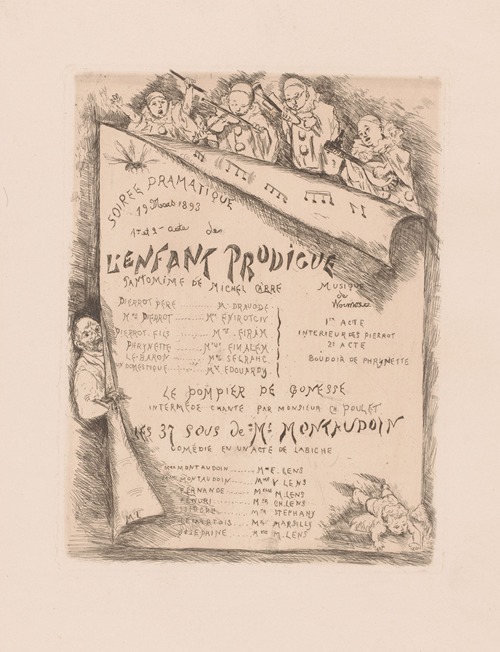 SOIRÉE DRAMATIQUE
19 Mars 1893
1er et 2me acte de
L'ENFANT PRODIGUE
PANTOMIME DE MICHEL CARRE
MUSIQUE
de
Wormser
PIERROT PÈRE ........ M. DRAUODE
Mme PIERROT ........ Mme ENIROTCIV
PIERROT FILS ........ Mme EIRAM
PHRYNETTE ........ Mme EINALEM
LE BARON ........ SEGRAHC
UN DOMESTIQUE ........ Mr EDOUARDY
1er ACTE
INTERIEUR DES PIERROT
2e ACTE
BOUDOIR DE PHRYNETTE
LE POMPIER DE GONESSE
INTERMÈDE CHANTÉ PAR MONSIEUR CH POULET
LES 37 SOUS de Mr MONTAUDOIN
COMÉDIE EN UN ACTE DE LABICHE
MONTAUDOIN ...... E. LENS
MONTAUDOIN ...... Mme V LENS
FERNANDE ...... Melle M. LENS
...... Mr CH. LENS
ISIDORE ...... Mr STEPHANY
LEMARTOIS ...... Mr MARSILLY
JOSEPHINE ...... M. LENS